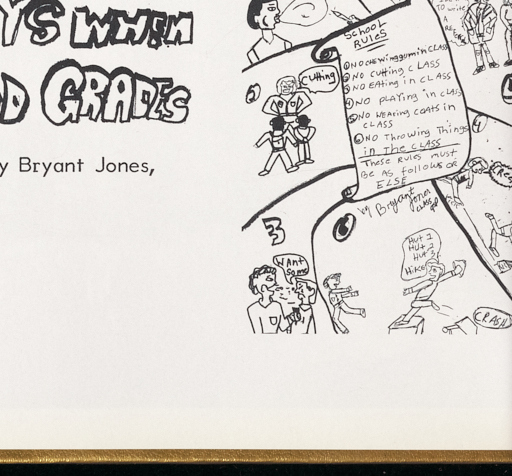 YS WHEN
D GRADES
y Bryant Jones,
SCHOOL
RULES
① NO CHEWING gum in CLASS
② NO CUTTING CLASS
③ NO EATING in CLASS
④ NO PLAYING in CLASS
⑤ NO WEARING COATS in
CLASS
⑥ NO Throwing Things
in THE CLASS
These RULES must
BE AS follows OR
ELSE
By Bryant
Jones
CLASS
CUTTING
3
WANT
Some
6
HUT 1
HUT 2
HUT 3
HIKE
CRASH
4